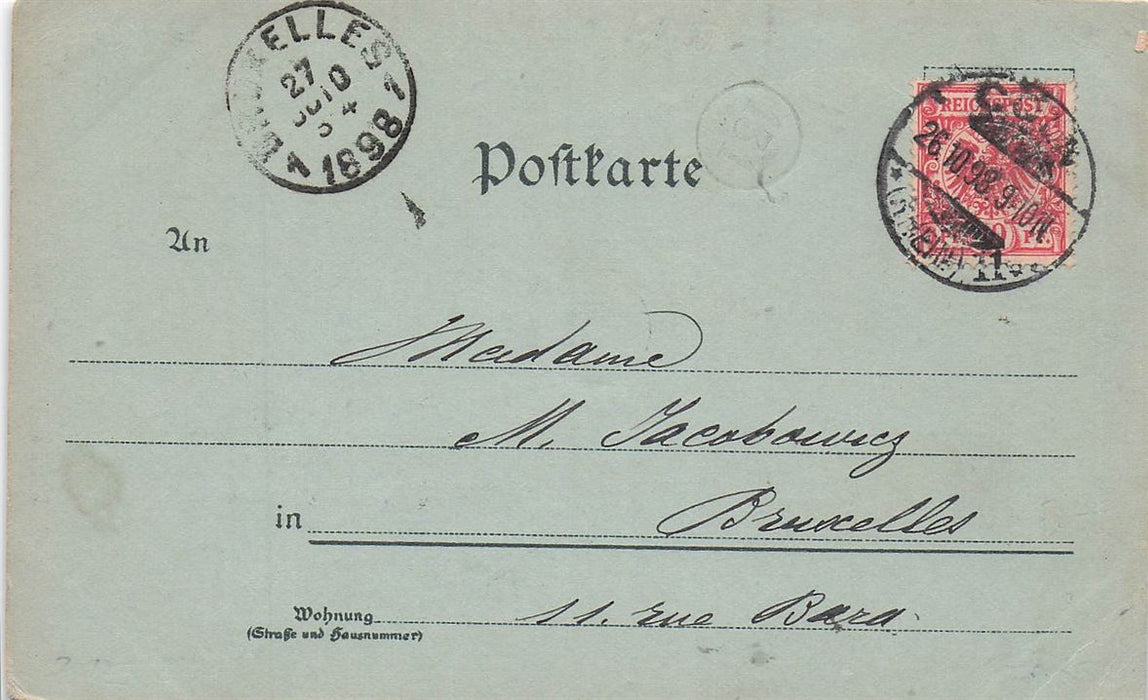 BRUXELLES 1
27
1898
Postkarte
REICHSPOST
26.10.98. 9-10N.
(RHEIN)
An
Madame
M. Jacobowicz
in Bruxelles
Wohnung 11. rue Bara
(Straße und Hausnummer)